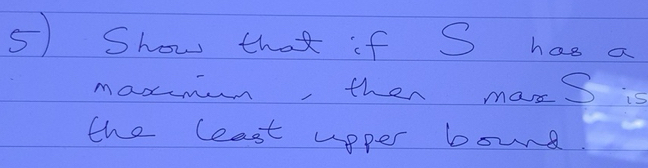 5) Show that if S has a
maximum, then max S is
the least upper bound.